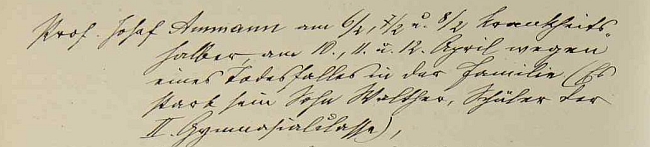 Prof. Josef Ammann am 6/2, 7/2 u. 8/2 krankheits-
halber, am 10., 11. u. 12. April wegen
eines Todesfalles in der Familie (Es
starb sein Sohn Walther, Schüler der
II. Gymnasialclasse),